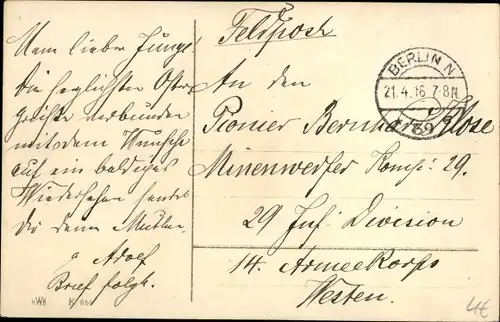 Mein lieber Junge!
Die herzlichsten Oster-
Grüße verbunden
mit dem Wunsche
auf ein baldiges
Wiedersehen sendet
Dir deine Mutter
u Adolf
Brief folgt.
HWB K 86
Feldpost
An den
Pionier Bernhard Klose
Minenwerfer Komp: 29.
29 Inf: Division
14. Armeekorps
Westen.
BERLIN N
21.4.16 7-8N
39
4€